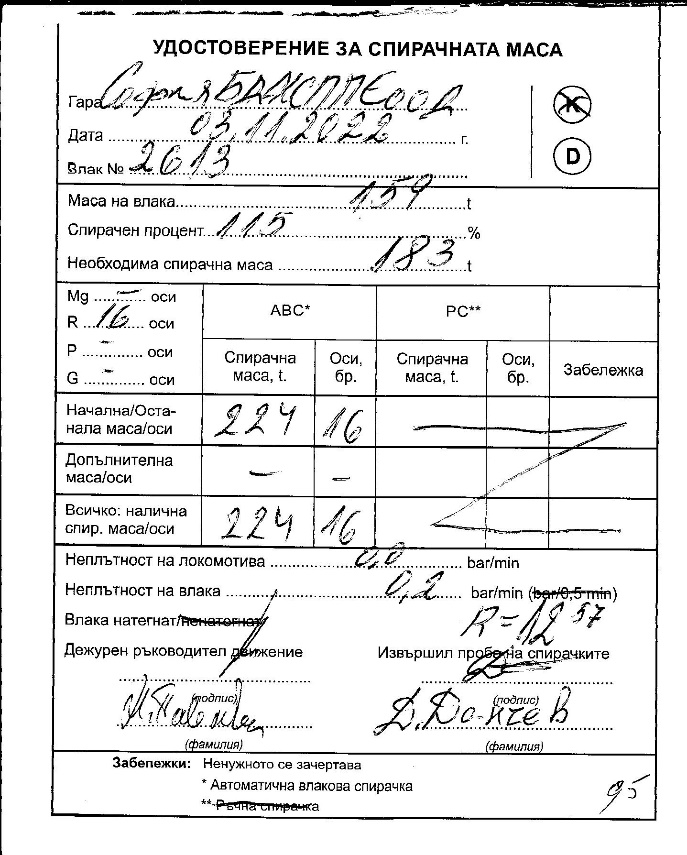 УДОСТОВЕРЕНИЕ ЗА СПИРАЧНАТА МАСА
Гара София БДЖ ППЄООД
К
Дата 03.11.2022 г.
D
Влак № 2613
Маса на влака 159 t
Спирачен процент 115 %
Необходима спирачна маса 183 t
Mg – оси
R 16 оси
P – оси
G – оси
ABC* PC**
Спирачна маса, t. Оси, бр. Спирачна маса, t. Оси, бр. Забележка
Начална/Оста-
нала маса/оси 224 16
Допълнителна
маса/оси – –
Всичко: налична
спир. маса/оси 224 16
Неплътност на локомотива 0,0 bar/min
Неплътност на влака 0,2 bar/min (bar/0,5 min)
Влака натегнат/ненатегнат R=12 57
Дежурен ръководител движение Извършил проба на спирачките
(подпис) (подпис)
Д. Дончев
(фамилия) (фамилия)
Забепежки: Ненужното се зачертава
* Автоматична влакова спирачка
** Ръчна спирачка
95